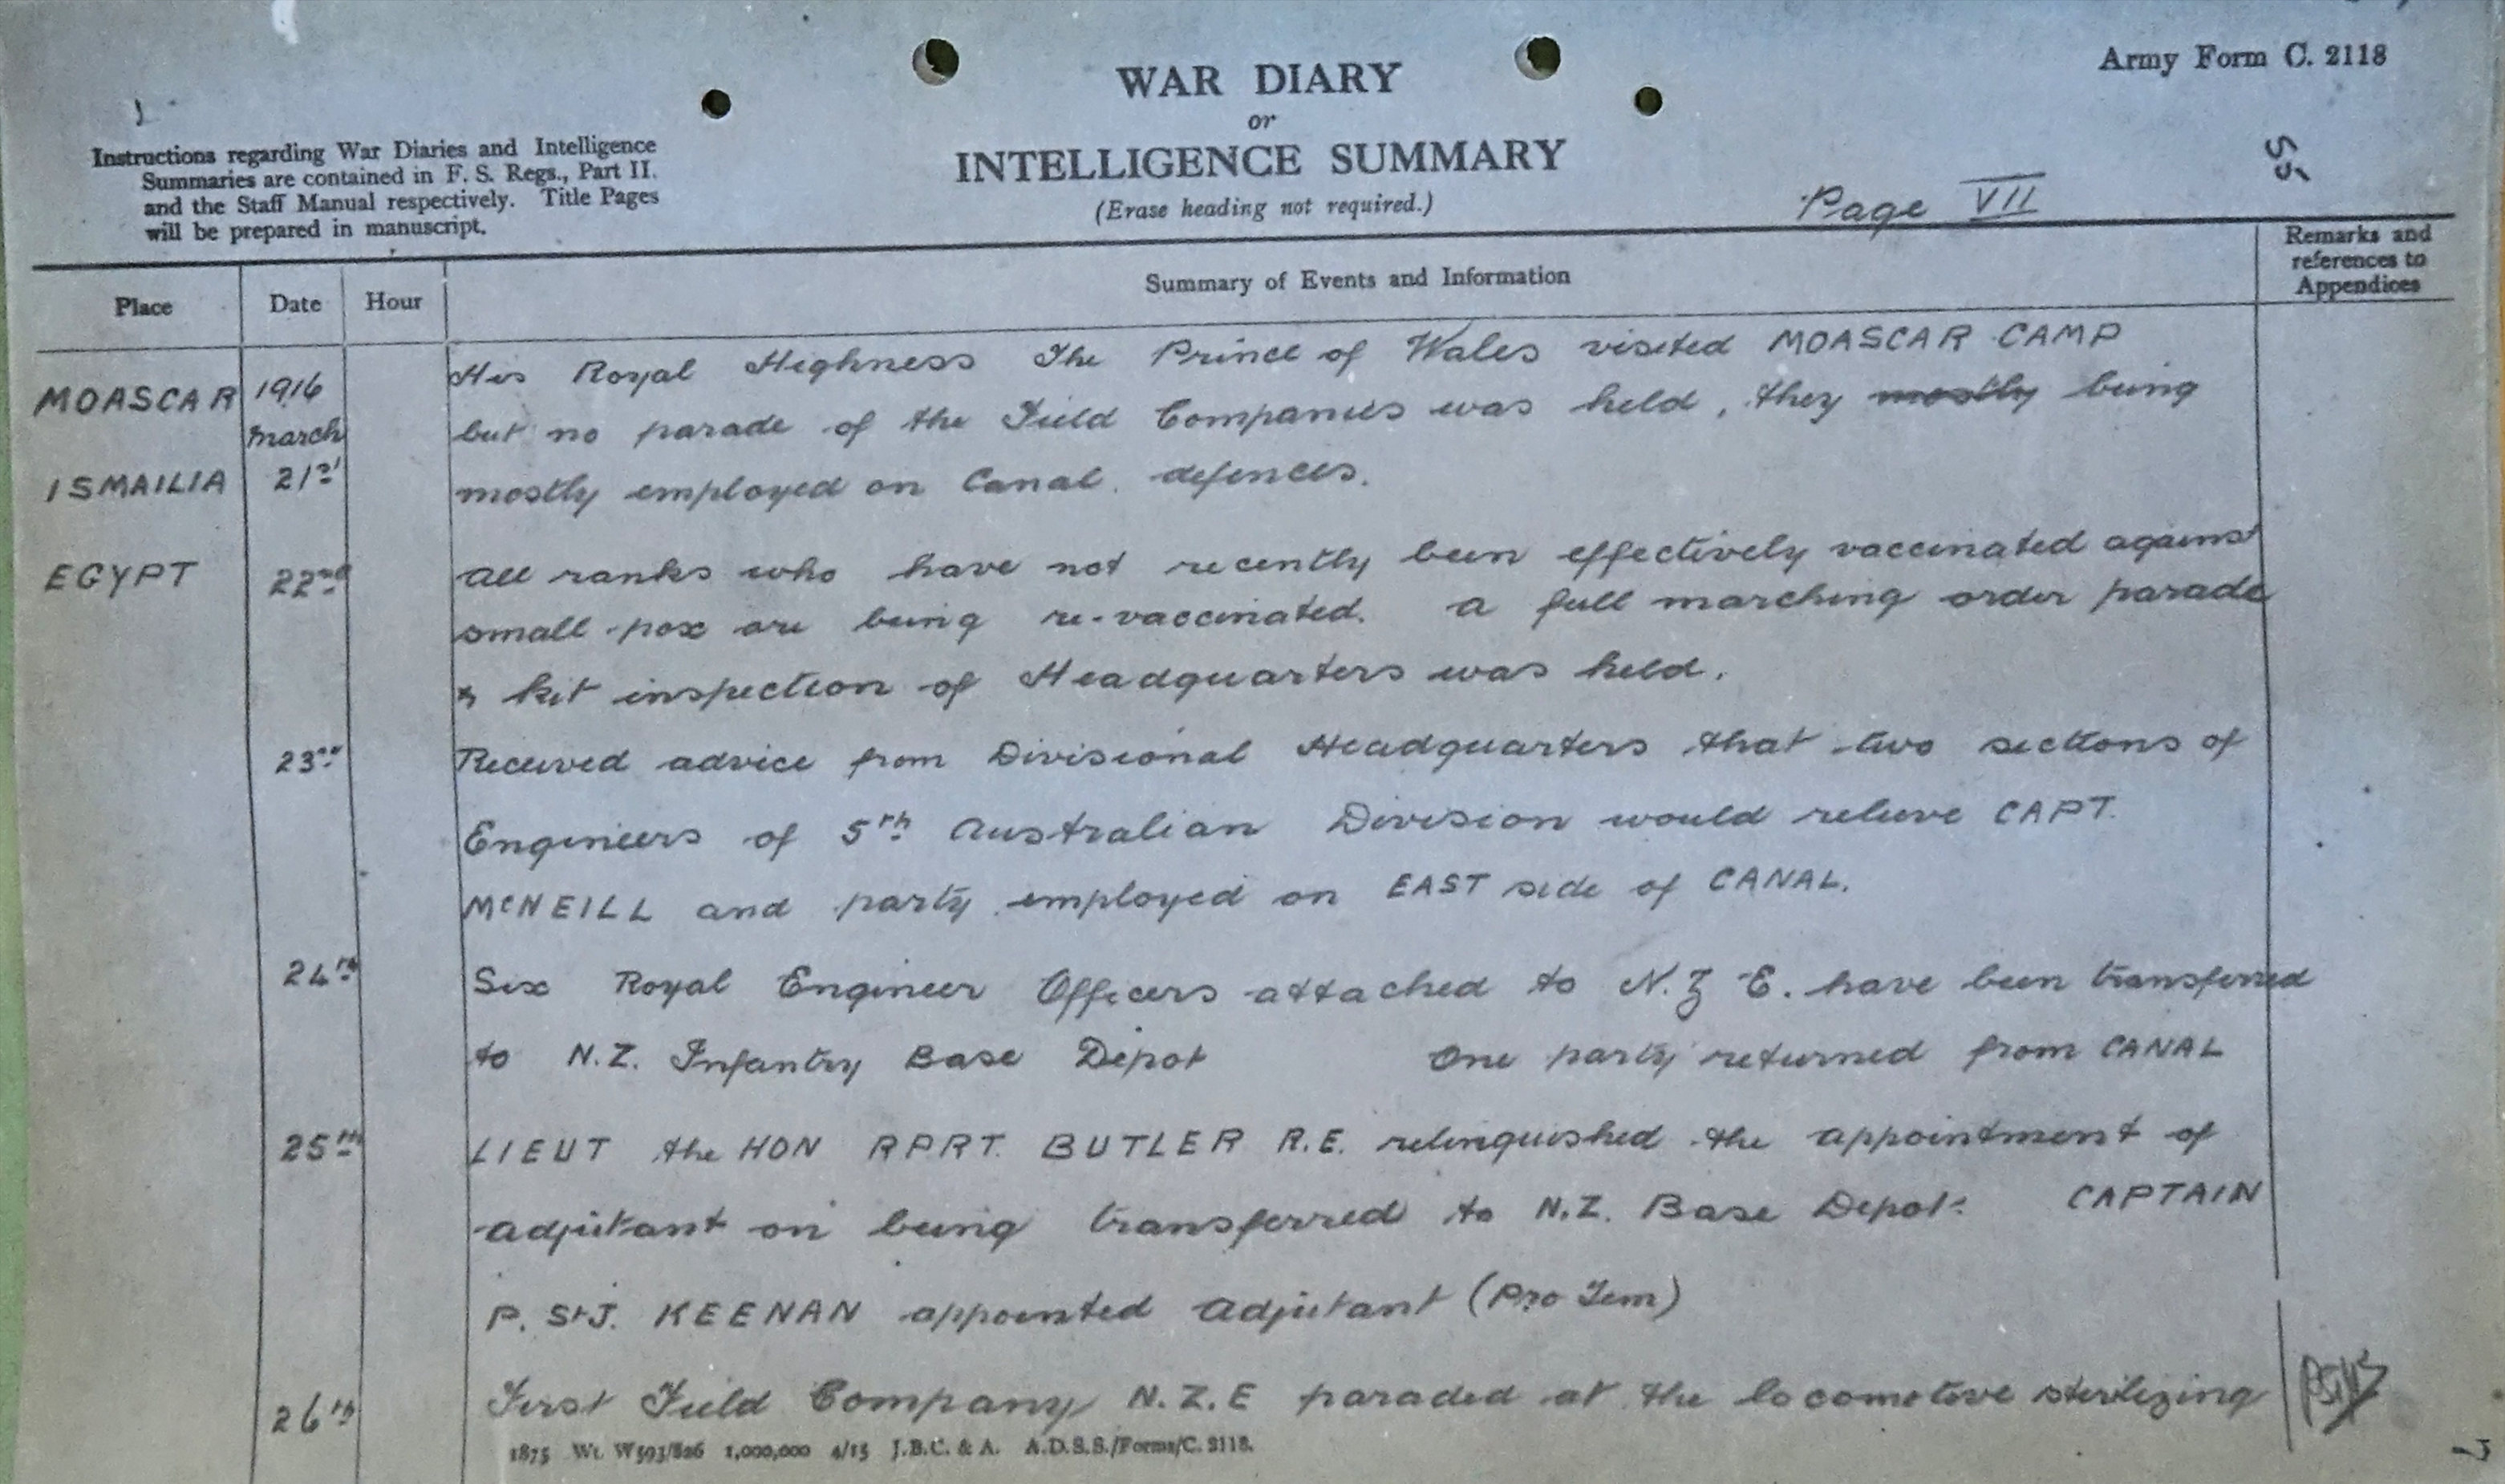 Army Form C. 2118
WAR DIARY
or
INTELLIGENCE SUMMARY
(Erase heading not required.)
Instructions regarding War Diaries and Intelligence
Summaries are contained in F. S. Regs., Part II.
and the Staff Manual respectively. Title Pages
will be prepared in manuscript.
55
Page VII
Place Date Hour Summary of Events and Information Remarks and
references to
Appendices
MOASCAR 1916 His Royal Highness The Prince of Wales visited MOASCAR CAMP
March but no parade of the Field Companies was held, they mostly being
ISMAILIA 21st mostly employed on Canal defences.
EGYPT 22nd All ranks who have not recently been effectively vaccinated against
small-pox are being re-vaccinated. A full marching order parade
& kit inspection of Headquarters was held.
23rd Received advice from Divisional Headquarters that two sections of
Engineers of 5th Australian Division would relieve CAPT.
McNEILL and party employed on EAST side of CANAL.
24th Six Royal Engineer Officers attached to N.Z.E. have been transferred
to N.Z. Infantry Base Depot One party returned from CANAL
25th LIEUT the HON R.P.R.T. BUTLER R.E. relinquished the appointment of
adjutant on being transferred to N.Z. Base Depot. CAPTAIN
P. St J. KEENAN appointed Adjutant (Pro Tem)
26th First Field Company N.Z.E paraded at the locomotive sterilizing
1875 Wt. W593/826 1,000,000 4/15 J.B.C. & A. A.D.S.S./Forms/C. 2118.